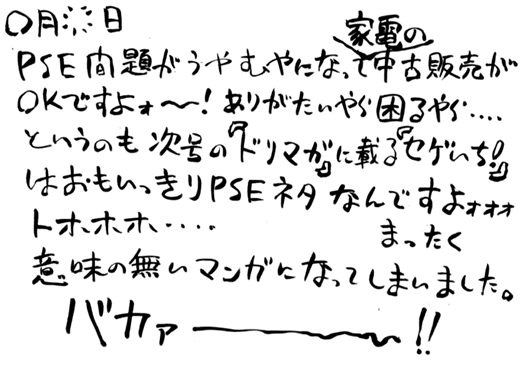 〇月※日
家電の
PSE問題がうやむやになって中古販売が
OKですよォ〜!ありがたいやら困るやら‥‥
というのも次号の『ドリマガ』に載る『セゲいち!』
はおもいっきりPSEネタなんですよォォォ
トホホホ‥‥
まったく
意味の無いマンガになってしまいました。
バカァーーー〜!!